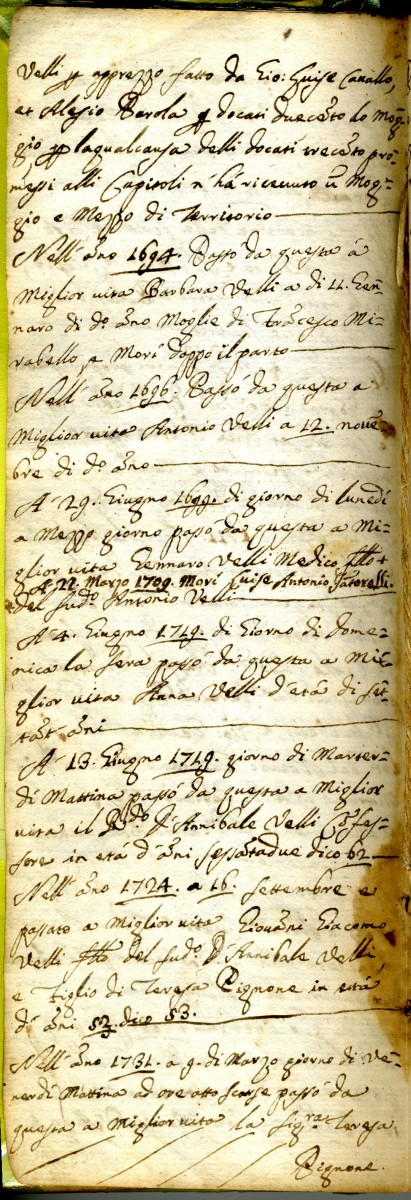 Velli p apprezzo fatto da Gio: Luise Cavallo,
et Alesio Barola p docati duecẽto lo Mog-
gio p laqualcausa delli docati trecẽto pro-
messi alli Capitoli n'há ricevuto ũ Mog-
gio e Mezzo di Territorio
Nell' ãno 1694. Passó da questa á
Miglior vita Barbara Velli a di 11. Gen-
naro di d.º ãno Moglie di Frãcesco Mi-
rabello, e Morí doppo il parto
Nell' ãno 1696. Passó da questa a
Miglior vita Antonio Velli a 12. novẽ-
bre di d.º ãno
A' 29. Giugno 1699. di giorno di lunedí
a Mezzo giorno passó da questa a Mi-
glior vita Gennaro Velli Medico ffło +
A 22. Marzo 1709. Morí Luise Antonio Satorelli.
del sud.º Antonio Velli
A' 4. Giugno 1719. di Giorno di Dome-
nica la sera passó da questa a Mi-
glior vita Anna Velli d'etá di set-
tãt' ãni
A' 13. Giugno 1719. giorno di Marter-
dí Mattina passó da questa a Miglior
vita il R.do D. Annibale Velli Cõfes-
sore in etá d'ãni sessãtadue dico 62
Nell' ãno 1724. a 16. settembre e
passato a Miglior vita Giovãni Giacomo
Velli ffło del sud.º D. Annibale Velli,
e figlio di Teresa Pignone in etá
d' ãni 52. dico 53.
Nell' ãno 1731. a 9. di Marzo giorno di Ve-
nerdí Mattina ad ore otto scarse passó da
questa a Miglior vita la sig.ra Teresa
Pignone.